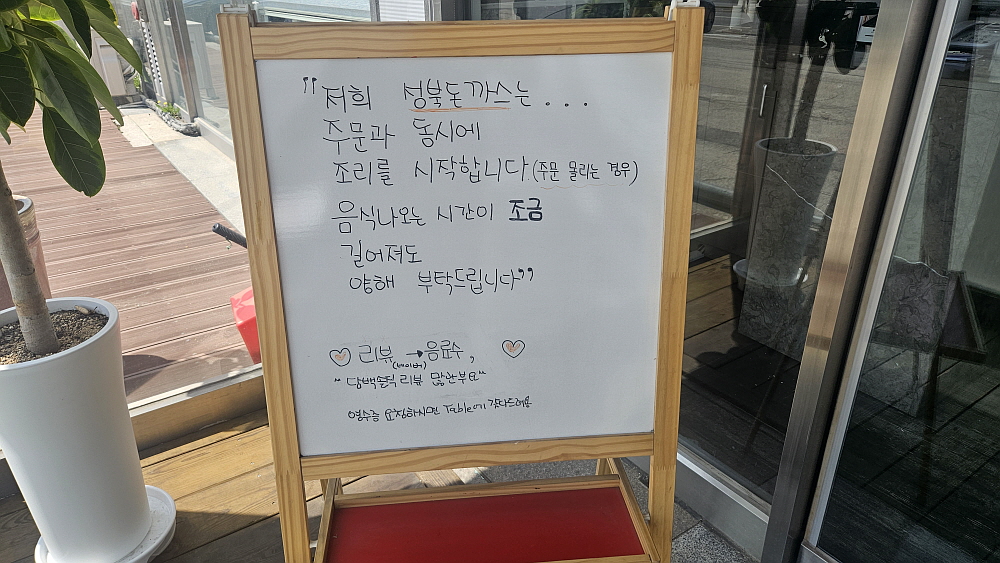 "저희 성북돈까스는...
주문과 동시에
조리를 시작합니다 (주문 몰리는 경우)
음식나오는 시간이 조금
길어져도
양해 부탁드립니다"
♡ 리뷰 → 음료수, ♡
(네이버)
"담백솔직 리뷰 많관부요"
영수증 요청하시면 Table에 갖다드려용